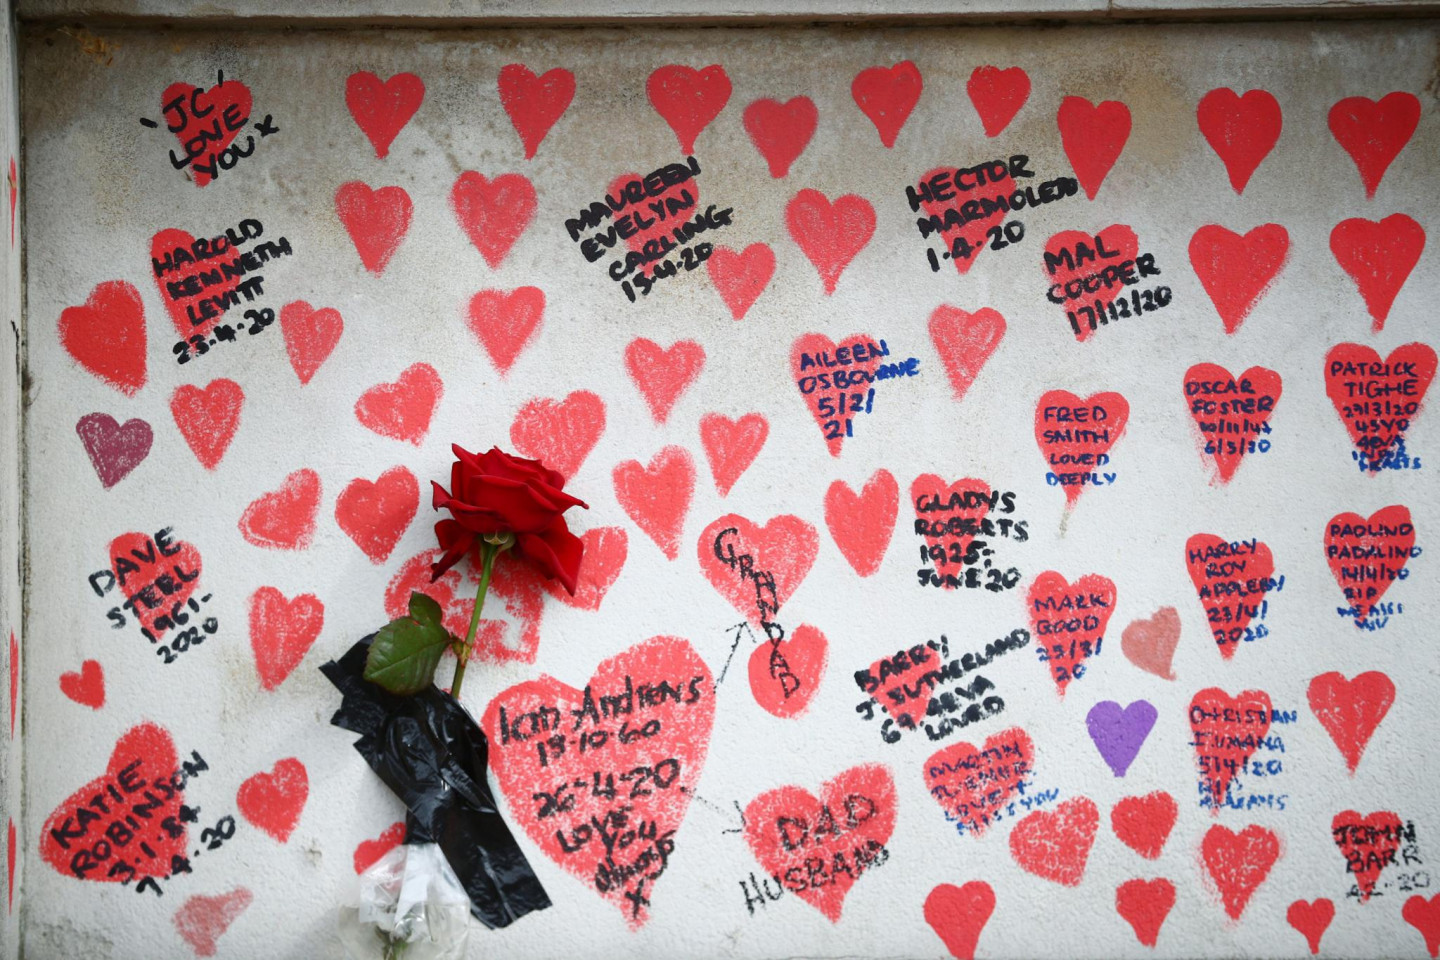 'JC'
LOVE
YOU X
HAROLD
KENNETH
LEVITT
23.4.20
MAUREEN
EVELYN
CARLING
15.4.20
HECTOR
MARMOLEJO
1.4.20
MAL
COOPER
17/12/20
AILEEN
OSBOURNE
5/2/
21
FRED
SMITH
LOVED
DEEPLY
OSCAR
FOSTER
6/5/20
PATRICK
TIGHE
29/3/20
DAVE
STEEL
1961-
2020
GRANDAD
GLADYS
ROBERTS
1925-
JUNE 20
HARRY
ROY
APPLEBY
23/4/
2020
PAOLINO
PADALINO
14/4/20
RIP
MARK
GOOD
25/3/
20
BARRY
J SUTHERLAND
69 4EVA
LOVED
KATIE
ROBINSON
3.1.84
7.4.20
Ian Andrens
18-10-60
26-4-20
LOVE
YOU
always
X
DAD
HUSBAND
MARTIN
MISS YOU
CHRISTIAN
5/4/20
BARR